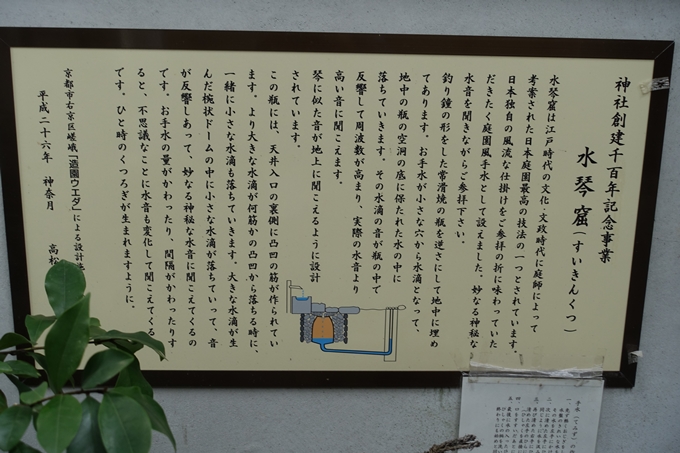 神社創建千百年記念事業
水琴窟(すいきんくつ)
水琴窟は江戸時代の文化・文政時代に庭師によって
考案された日本庭園最高の技法の一つとされています。
日本独自の風流な仕掛けをご参拝の折に味わっていた
だきたく庭園風手水として設えました。妙なる神秘な
水音を聞きながらご参拝下さい。
釣り鐘の形をした常滑焼の瓶を逆さにして地中に埋め
てあります。お手水が小さな穴から水滴となって、
地中の瓶の空洞の底に保たれた水の中に
落ちていきます。その水滴の音が瓶の中で
反響して周波数が高まり、実際の水音より
高い音に聞こえます。
琴に似た音が地上に聞こえるように設計
されています。
この瓶には、天井入口の裏側に凸凹の筋が作られてい
ます。より大きな水滴が何筋かの凸凹から落ちる時に、
一緒に小さな水滴も落ちていきます。大きな水滴が生
んだ椀状ドームの中に小さな水滴が落ちていって、音
が反響しあって、妙なる神秘な水音に聞こえてくるの
です。お手水の量がかわったり、間隔がかわったりす
ると、不思議なことに水音も変化して聞こえてくる
です。ひと時のくつろぎが生まれますように。
京都市右京区嵯峨「造園ウエダ」による設計
平成二十六年 神奈月 高松